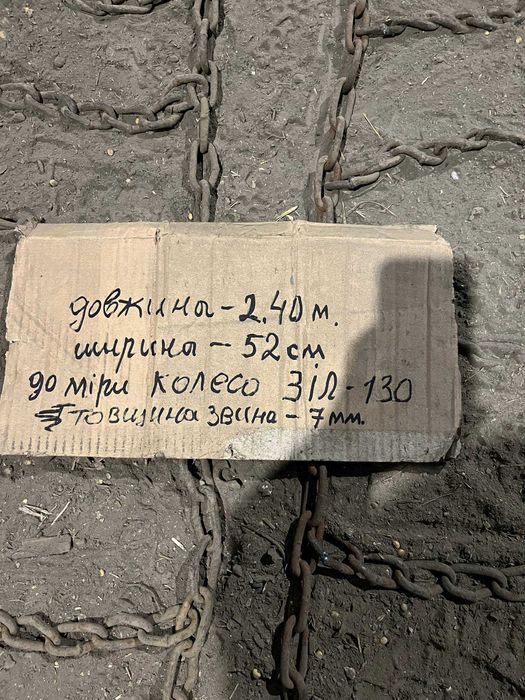 довжины - 2.40 м.
ширины - 52 см
до міри колесо ЗІЛ-130
товщина звина - 7 мм.